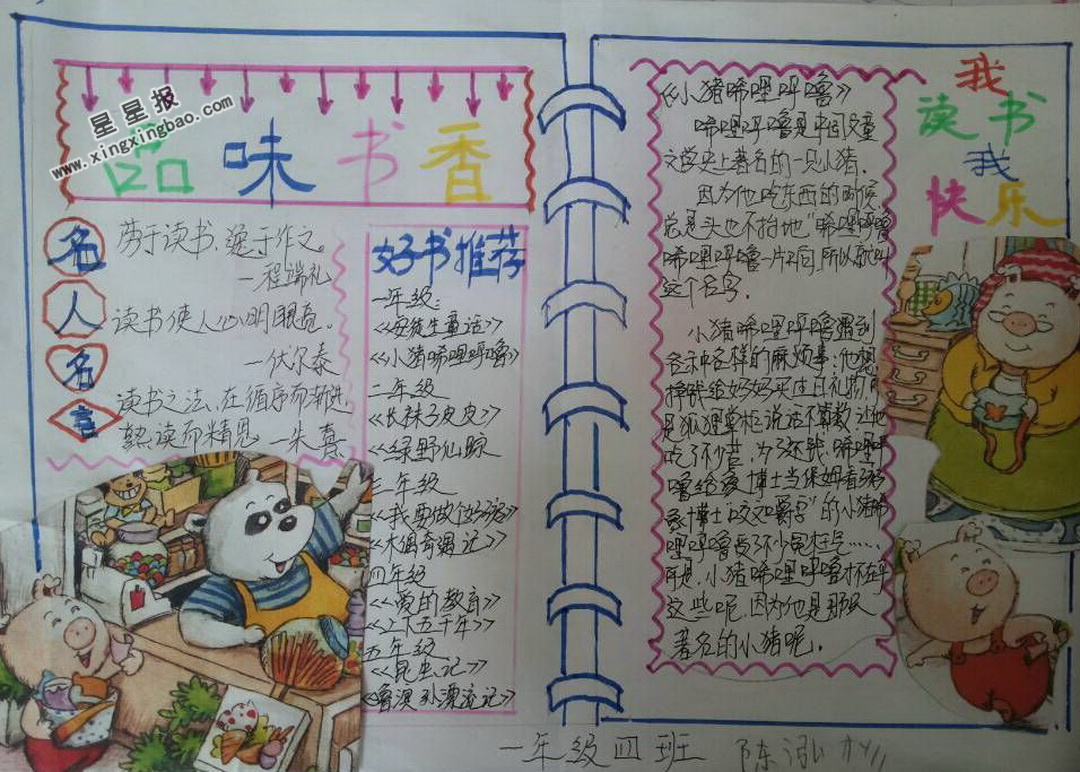 星星报
www.xingxingbao.com
品味书香
名人名言
劳于读书，逸于作文。
—程端礼
读书使人心明眼亮。
—伏尔泰
读书之法，在循序而渐进，
熟读而精思 —朱熹
好书推荐
一年级：
《安徒生童话》
《小猪唏哩呼噜》
二年级
《长袜子皮皮》
《绿野仙踪
三年级
《我要做个好孩》
《木偶奇遇记》
四年级
《爱的教育》
《上下五千年》
五年级
《昆虫记》
《鲁滨孙漂流记》
我读书我快乐
《小猪唏哩呼噜》
唏哩呼噜是中国儿童
文学史上著名的一只小猪．
因为他吃东西的时候，
总是头也不抬地“唏哩呼噜
唏哩呼噜一片响，所以就叫
这个名字．
小猪唏哩呼噜遇到
各种各样的麻烦事：他想
挣钱给妈妈买生日礼物，可
是狐狸掌柜说话不算数，让他
吃了不少苦，为了还钱，唏哩呼
噜给 博士当保姆看
博士 咬文嚼字”的小猪唏
哩呼噜受了不少冤枉气……
可是，小猪唏哩呼噜才不在乎
这些呢，因为他是那只
著名的小猪呢。
一年级四班 陈泓